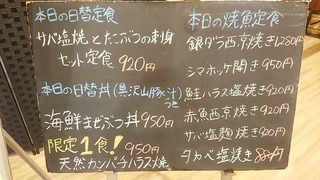 本日の日替定食
サバ塩焼とたこぶつの刺身
セット定食 920円
本日の日替丼(具沢山豚汁つき)
海鮮まぜぶつ丼 950円
限定1食! 950円
天然カンパチハラス焼
本日の焼魚定食
銀ダラ西京焼き 1280円
シマホッケ開き 950円
鮭ハラス塩焼き 920円
赤魚西京焼き 920円
サバ塩麹焼き 920円
タカベ塩焼き 880円